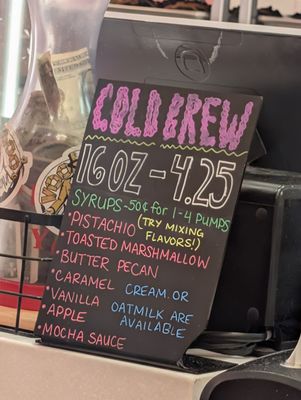 COLD BREW
16OZ - 4.25
SYRUPS-50¢ FOR 1-4 PUMPS
(TRY MIXING
FLAVORS!)
•PISTACHIO
•TOASTED MARSHMALLOW
•BUTTER PECAN
•CARAMEL
•VANILLA
•APPLE
•MOCHA SAUCE
CREAM OR
OATMILK ARE
AVAILABLE